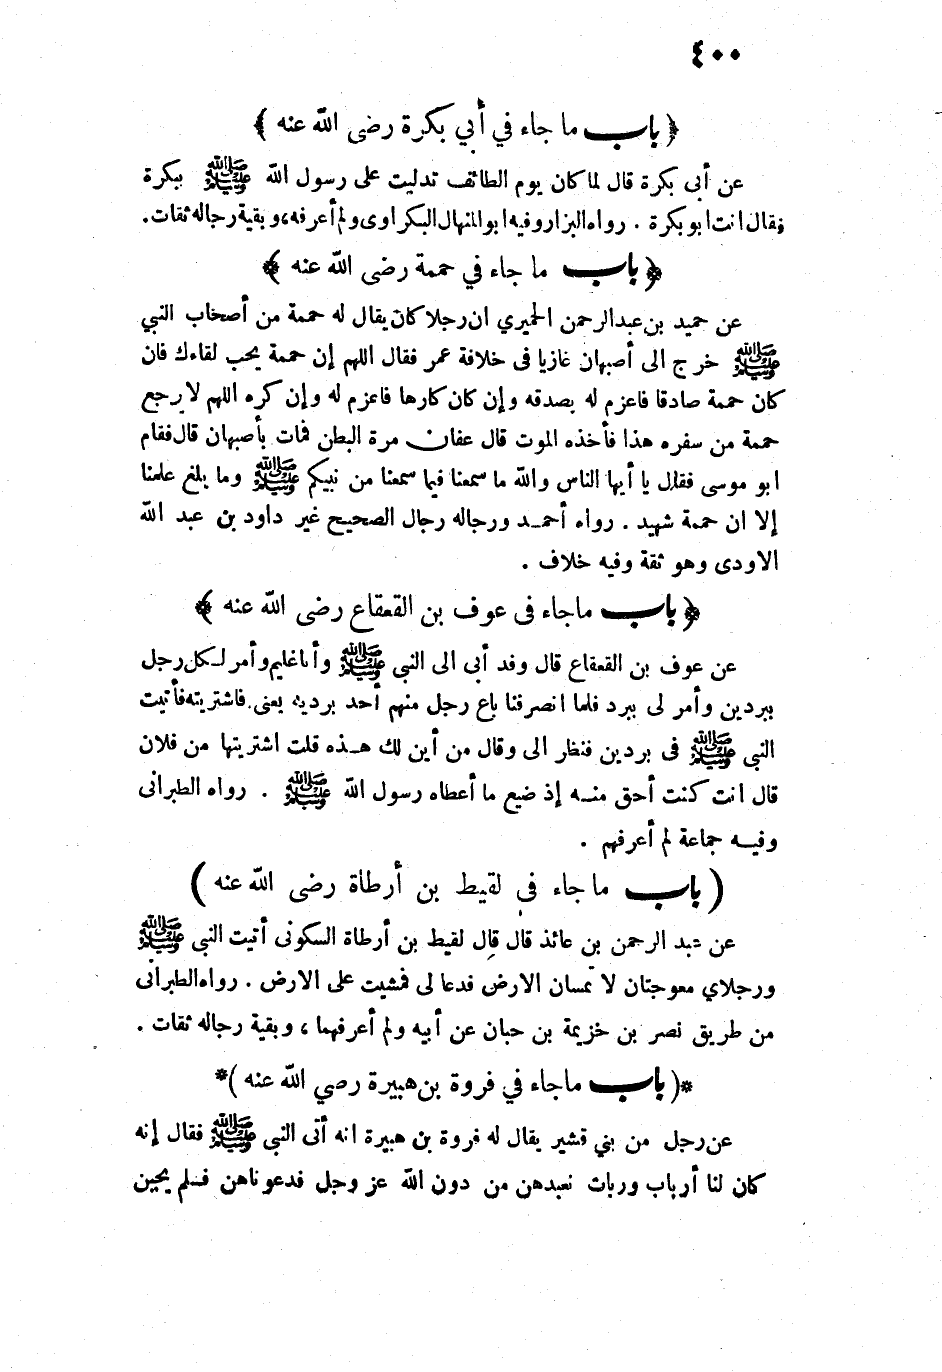 ٤٠٠
﴿ باب ما جاء في أبي بكرة رضى الله عنه ﴾
عن أبى بكرة قال لما كان يوم الطائف تدليت على رسول الله ﷺ ببكرة
فقال انت ابو بكرة . رواه البزار وفيه ابو المنهال البكراوى ولم أعرفه، وبقية رجاله ثقات.
﴿ باب ما جاء في حممة رضى الله عنه ﴾
عن حميد بن عبدالرحمن الحميري ان رجلا كان يقال له حممة من أصحاب النبي
ﷺ خرج الى أصبهان غازيا فى خلافة عمر فقال اللهم إن حممة يحب لقاءك فان
كان حممة صادقا فاعزم له بصدقه وإن كان كارها فاعزم له وإن كره اللهم لا يرجع
حممة من سفره هذا فأخذه الموت قال عفان مرة البطن فمات بأصبهان قال فقام
ابو موسى فقال يا أيها الناس والله ما سمعنا فيما سمعنا من نبيكم ﷺ وما بلغ علمنا
إلا ان حممة شهيد . رواه أحمد ورجاله رجال الصحيح غير داود بن عبد الله
الاودى وهو ثقة وفيه خلاف .
﴿ باب ماجاء فى عوف بن القعقاع رضى الله عنه ﴾
عن عوف بن القعقاع قال وفد أبي الى النبي ﷺ وأنا غليم وأمر لكل رجل
ببردين وأمر لى ببرد فلما انصرفنا باع رجل منهم أحد برديه يعنى فاشتريته فأتيت
النبى ﷺ فى بردين فنظر الى وقال من أين لك هذه قلت اشتريتها من فلان
قال انت كنت أحق منه إذ ضيع ما أعطاه رسول الله ﷺ . رواه الطبرانى
وفيه جماعة لم أعرفهم .
( باب ما جاء في لقيط بن أرطاة رضى الله عنه )
عن عبد الرحمن بن عائذ قال قال لقيط بن أرطاة السكونى أتيت النبى ﷺ
ورجلاي معوجتان لا تمسان الارض فدعا لى فمشيت على الارض . رواه الطبرانى
من طريق نصر بن خزيمة بن حبان عن أبيه ولم أعرفهما ، وبقية رجاله ثقات .
*( باب ماجاء في فروة بن هبيرة رضي الله عنه )*
عن رجل من بني قشير يقال له فروة بن هبيرة انه أتى النبي ﷺ فقال إنه
كان لنا أرباب وربات نعبدهن من دون الله عز وجل فدعوناهن فسلم يجبن